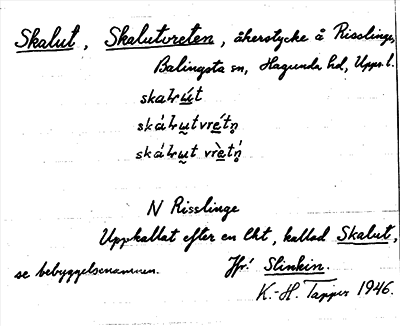 Skalut, Skalutvreten, åkerstycke å Risslinge,
Balingsta sn, Hagunda hd, Upps. l.
skaɫú̲t
ská̀ɫu̲tvré̲tn̥
ská̀ɫu̲t vrè̲tń̥
N Risslinge
Uppkallat efter en lht, kallad Skalut,
se bebyggelsenamnen. Jfr! Slinkin.
K.-H. Tapper 1946.